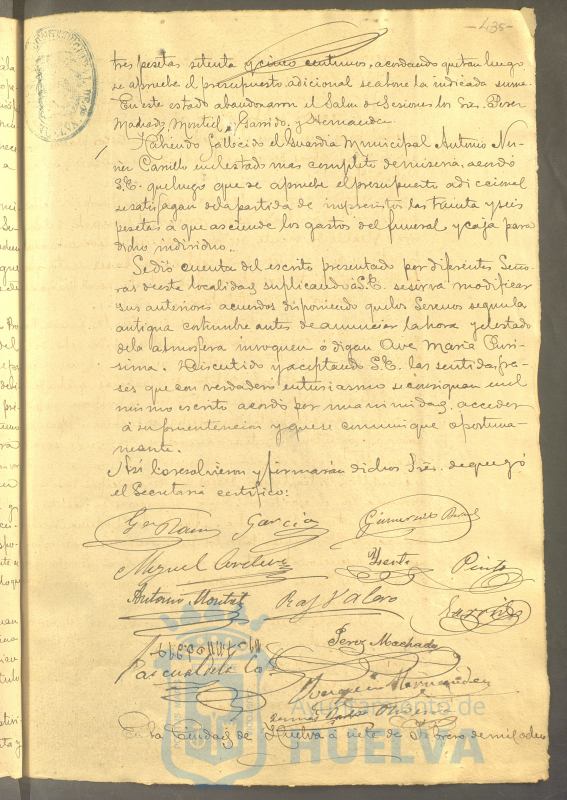 -435-
tres pesetas setenta y cinco centimos, acordando que tan luego
se apruebe el presupuesto adicional se abone la indicada suma.
En este estado abandonaron el Salon de Sesiones los Sres. Perez
Machado, Montiel, Garrido, y Hernandez.
Habiendo fallecido el Guardia Municipal Antonio
Carrillo en el estado mas completo de miseria, acordó
S.E. que luego que se apruebe el presupuesto adiccional
se satisfagan de la partida de imprevistos las treinta y seis
pesetas á que asciende los gastos del funeral y caja para
dicho individuo.
Se dió cuenta del escrito presentado por diferentes Seño-
ras de esta localidad, suplicando á S.E. se sirva modificar
sus anteriores acuerdos disponiendo que los Serenos segun la
antigua costumbre antes de anunciar la hora y el estado
de la atmosfera invoquen ó digan Ave Maria Puri-
sima. Discutido y aceptando S.E. las sentidas fra-
ses que con verdadero entusiasmo se consignan en el
mismo escrito acordó por unanimidad, acceder
á su y que se comunique oportuna-
mente.
Así lo resolvieron y firmarán dichos Sres. de que yó
el Secretario certifico:
García
Miguel
Pinto
Antonio Montiel Raf Valero Garrido
Perez Machado
Pascual de la
Joaquin Hernandez
En la Ciudad de Huelva á siete de Febrero de mil ocho
Ayuntamiento de
HUELVA